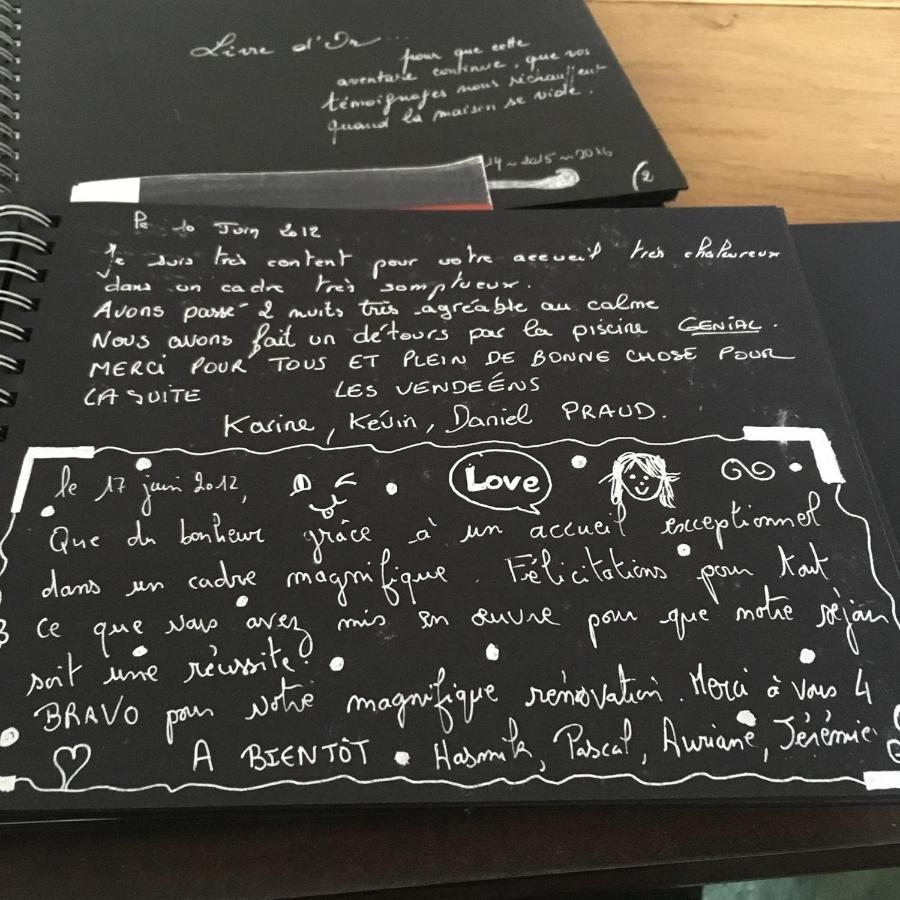 Livre d'Or...
pour que cette
aventure continue, que vos
témoignages nous réchauffent
quand la maison se vide.
14 ~ 2015 ~ 2016
(2
Le 10 Juin 2012
Je suis très content pour votre accueil très chaleureux
dans un cadre très somptueux.
Avons passé 2 nuits très agréable au calme
Nous avons fait un détours par la piscine GENIAL.
MERCI POUR TOUS ET PLEIN DE BONNE CHOSE POUR
LA SUITE LES VENDEÉNS
Karine, Kévin, Daniel PRAUD.
le 17 juin 2012, Love
Que du bonheur grâce à un accueil exceptionnel
dans un cadre magnifique. Félicitations pour tout
ce que vous avez mis en œuvre pour que notre séjour
soit une réussite!
BRAVO pour votre magnifique rénovation. Merci à vous 4
A BIENTÔT • Hasmik, Pascal, Auriane, Jérémie